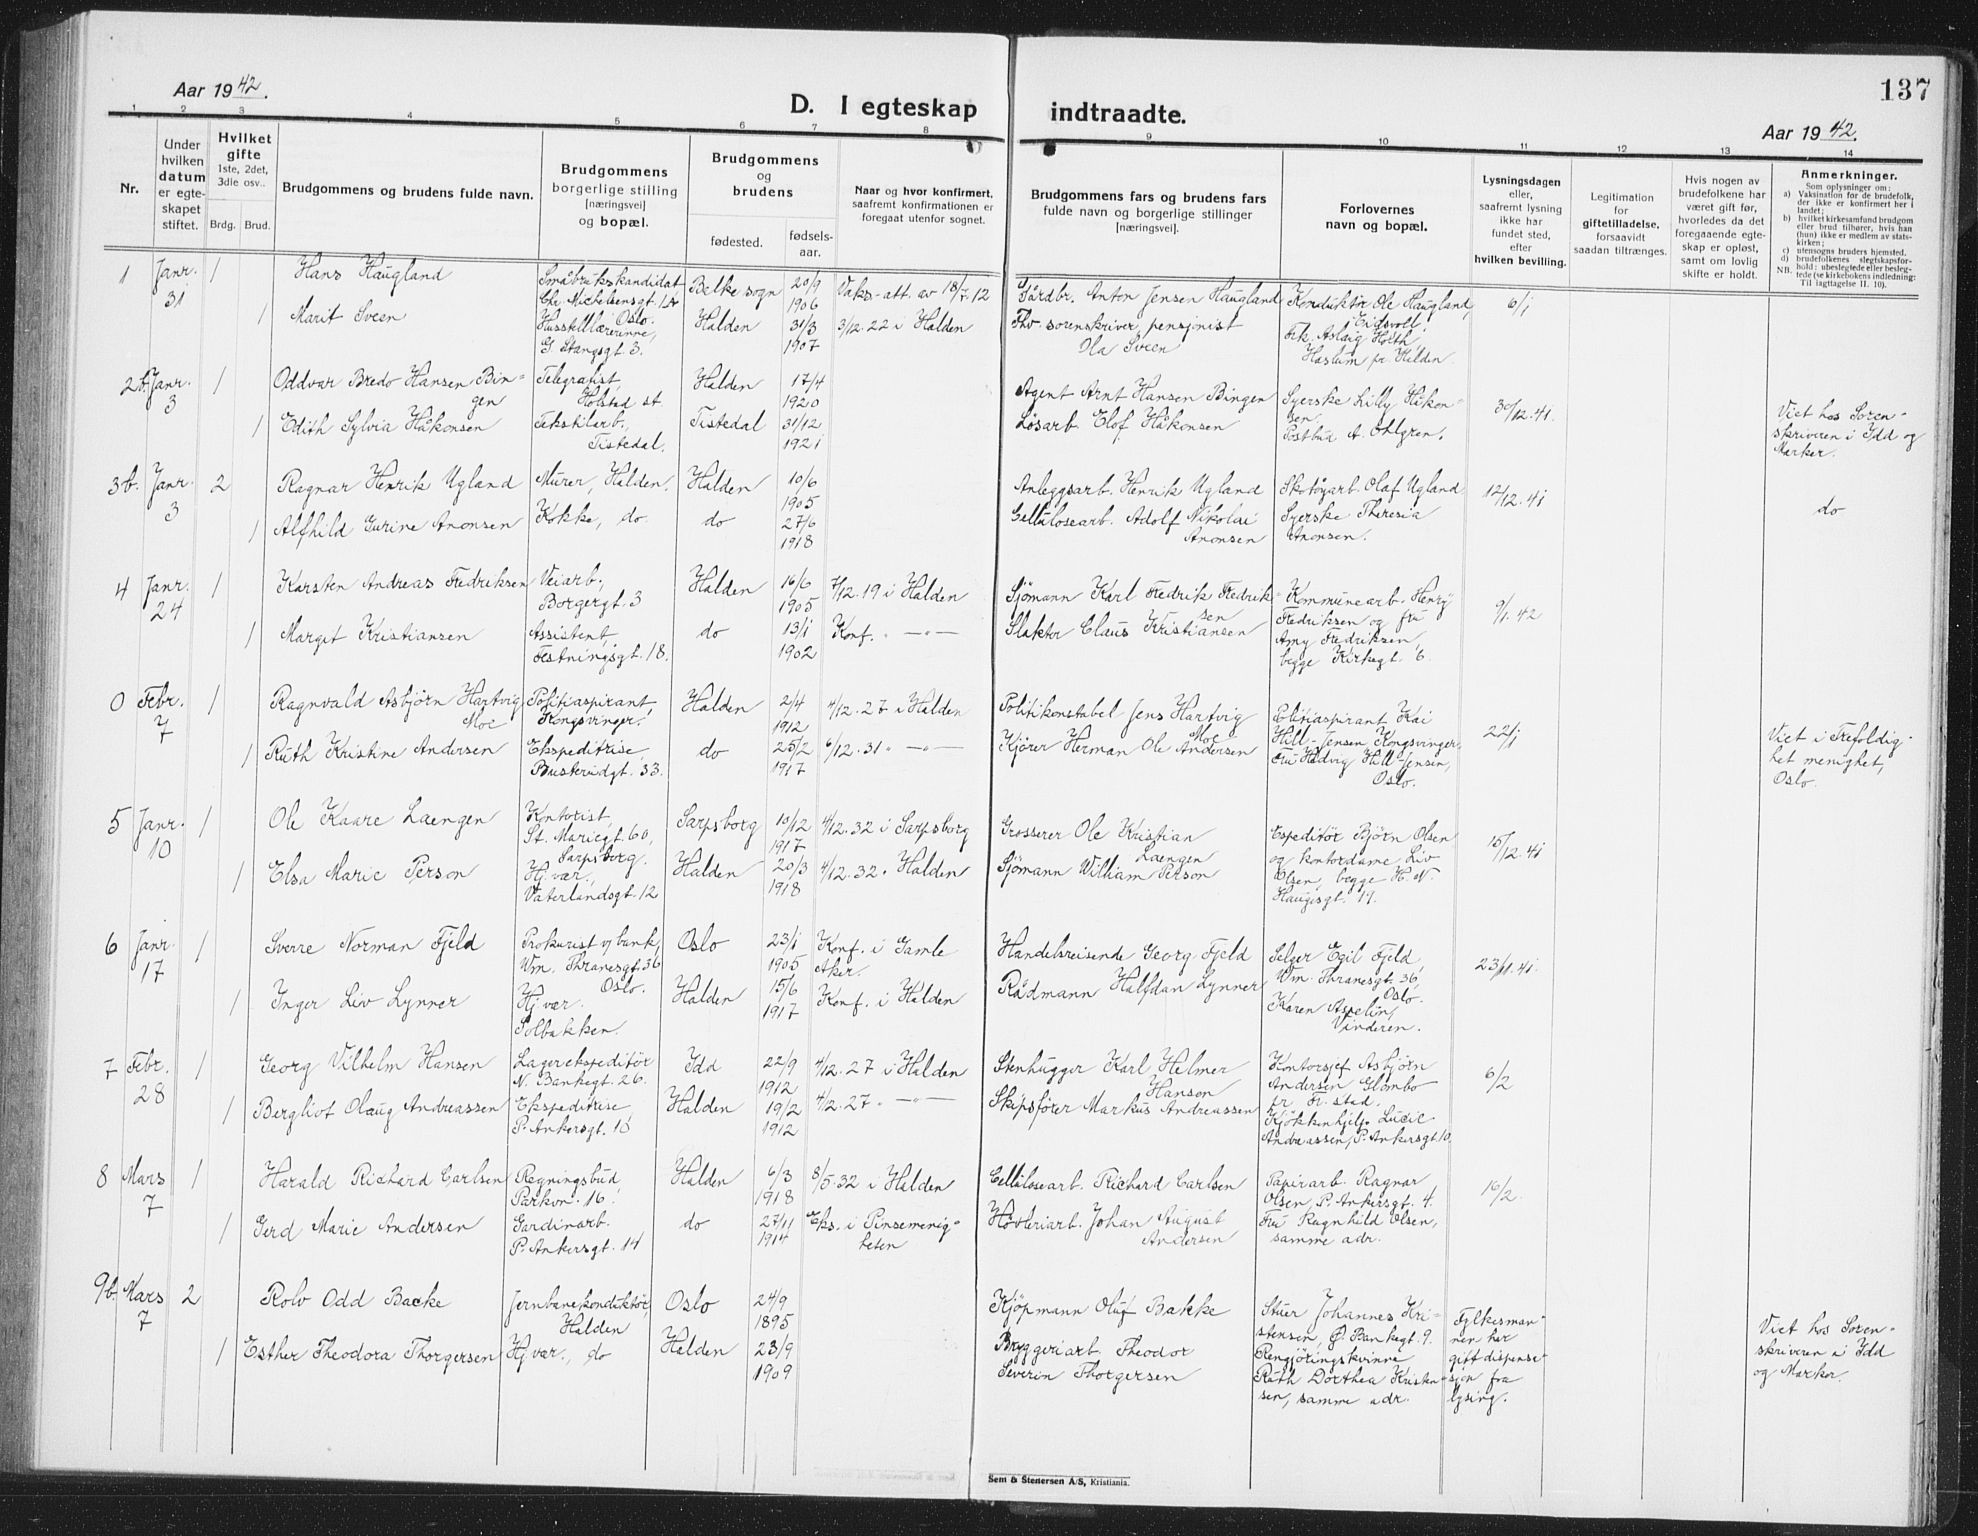 Aar 1942.
D. I egteskap indtraadte.
137
Aar 1942.
1 2 3 4 5 6 7 8 9 10 11 12 13 14
Nr.
Under hvilken datum er egteskapet stiftet.
Hvilket gifte
1ste, 2det, 3die osv..
Brdg. Brud.
Brudgommens og brudens fulde navn.
Brudgommens borgerlige stilling [næringsvei] og bopæl.
Brudgommens og brudens
fødested.
fødsels-aar.
Naar og hvor konfirmert, saafremt konfirmationen er foregaat utenfor sognet.
Brudgommens fars og brudens fars fulde navn og borgerlige stillinger [næringsvei].
Forlovernes navn og bopæl.
Lysningsdagen eller, saafremt lysning ikke har fundet sted, efter hvilken bevilling.
Legitimation for giftetilladelse, forsaavidt saadan tiltrænges.
Hvis nogen av brudefolkene har været gift før, hvorledes da det foregaaende egteskap er opløst, samt om lovlig skifte er holdt.
Anmerkninger.
Som oplysninger om:
a) Vaksination før de brudefolk, der ikke er konfirmert her i landet;
b) hvilket kirkesamfund brudgom eller brud tilhører, hvis han (hun) ikke er medlem av statskirken;
c) utensogns bruders hjemsted.
d) brudefolkenes slegtskapsforhold: ubeslegtede eller beslegtede (se kirkebokens indledning:
NB. Til iagttagelse II. 10).
1 Janr. 31 1 Hans Haugland Småbrukskandidat Chr. Michelsensgt. 1A Oslo. Belke sogn 20/9 1906 Vaks-att. av 18/7.12 Gårdbr. Anton Jensen Haugland Konduktör Ole Haugland, Eidsvoll. 6/1
1 Marit Sveen Husstellærerinne, G. Stangsgt. 3. Halden 31/3 1907 3/12.22 i Halden Fhv. sorenskriver, pensjonist Ola Sveen Frk. Aslaig Holth, Haslum pr. Halden.
2b. Janr. 3 1 Oddvar Bredo Hansen Bingen Telegrafist, Holstad st. Halden 17/4 1920 Agent Arnt Hansen Bingen Syerske Lilly Håkonsen 30/12.41.
1 Edith Sylvia Håkonsen Tekstilarb., Tistedal. Tistedal 31/12 1921 Lösarb. Elof Håkonsen Postbud A. Ohlgren. Viet hos Sorenskriveren i Idd og Marker.
3b. Janr. 3 2 Ragnar Henrik Ugland Murer, Halden. Halden 10/6 1905 Anleggsarb. Henrik Ugland Skotöyarb. Olaf Ugland 12/12.41 do
1 Alfhild Gurine Anonsen Kokke, do. do 27/6 1918 Cellulosearb. Adolf Nikolai Anonsen Syerske Theresia Anonsen.
4 Janr. 24 1 Karsten Andreas Fredriksen Veiarb., Borgergt. 3 Halden 16/6 1905 7/12.19 i Halden Sjömann Karl Fredrik Fredriksen Kommunearb. Henry Fredriksen og fru Amy Fredriksen, begge Kirkegt. 6. 9/1.42
1 Margit Kristiansen Assistent, Festningsgt. 18. do 13/1 1902 Konf. —"— Slaktor Claus Kristiansen
0 Febr. 7 1 Ragnvald Asbjörn Hartvig Moe Politiaspirant, Kongsvinger. Halden 2/4 1912 4/12.27 i Halden Politikonstabel Jens Hartvig Moe Politiaspirant Kai Hill-Jensen, Kongsvinger, 22/1
1 Ruth Kristine Andersen Ekspeditrise, Busterudgt. 33. do 25/2 1917 6/12.31 " —"— Kjörer Herman Ole Andersen Fru Hedvig Hill-Jensen, Oslo. Viet i Trefoldighet menighet, Oslo.
5 Janr. 10 1 Ole Kaare Laengen Kontorist, St. Mariegt. 60, Sarpsborg. Sarpsborg 10/12 1917 4/12.32 i Sarpsborg Grosserer Ole Kristian Laengen Espeditör Björn Olsen og kontordame Liv Olsen, begge H. N. Haugesgt. 19. 15/12.41
1 Elsa Marie Person Hj.vær., Vaterlandsgt. 12 Halden 20/3 1918 4/12.32 " Halden Sjömann William Person
6 Janr. 17 1 Sverre Norman Fjeld Prokurist v/ bank, Wm. Thranesgt. 36 Oslo. Oslo 23/1 1905 Konf. i Gamle Aker. Handelsreisende Georg Fjeld Selger Egil Fjeld, Wm. Thranesgt. 36, Oslo. 23/11.41.
1 Inger Liv Lynner Hj.vær. Solbakken. Halden 15/6 1917 Konf. i Halden Rådmann Halfdan Lynner Karen Aspelin, Vinderen.
7 Febr. 28 1 Georg Vilhelm Hansen Lagerekspeditör N. Bankegt. 26. Idd 22/9 1912 4/12.27 i Halden Stenhugger Karl Helmer Hanson Kontorsjef Asbjörn Andersen Glombo pr. Fr.stad. 6/2
1 Bergliot Olaug Andreassen Ekspeditrise, P. Ankersgt. 10 Halden 19/2 1912 4/12.27 " —"— Skipsförer Markus Andreassen Kjökkenhjelp Lucie Andreassen, P. Ankersgt. 10.
8 Mars 7 1 Harald Richard Carlsen Regningsbud Parkvn. 16. Halden 6/3 1918 8/5.32 i Halden Cellulosearb. Richard Carlsen Papirarb. Ragnar Olsen, P. Ankersgt. 4. 16/2.
1 Gerd Marie Andersen Gardinarb. P. Ankersgt. 14 do 27/11 1914 Eks. i Pinsemenigheten Hövleriarb. Johan August Andersen Fru Ragnhild Olsen, samme adr.
9b. Mars 7 2 Rolv Odd Backe Jernbanekonduktör, Halden Oslo 24/9 1895 Kjöpmann Oluf Bakke Stuer Johannes Kristensen, Ø. Bankegt. 9. Fylkesmannen har giftdispensasjon fra lysing.
1 Esther Theodora Thorgersen Hj.vær., do Halden 23/9 1909 Bryggeriarb. Theodor Severin Thorgersen Rengjöringskvinne Ruth Dorthea Kristensen, samme adr. Viet hos Sorenskriveren i Idd og Marker.
Sem & Stenersen A/S, Kristiania.